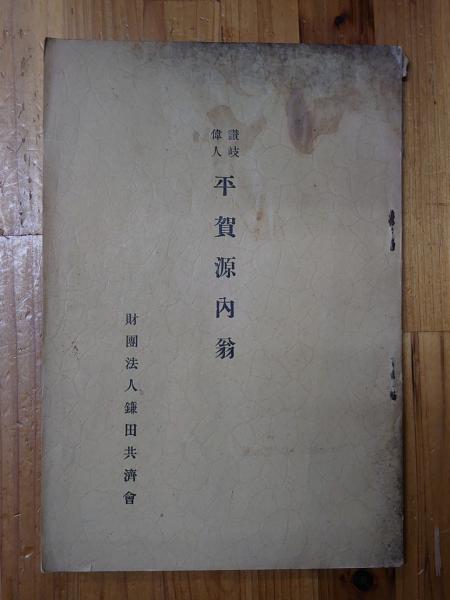 讃岐
偉人
平賀源内翁
財團法人鎌田共濟會